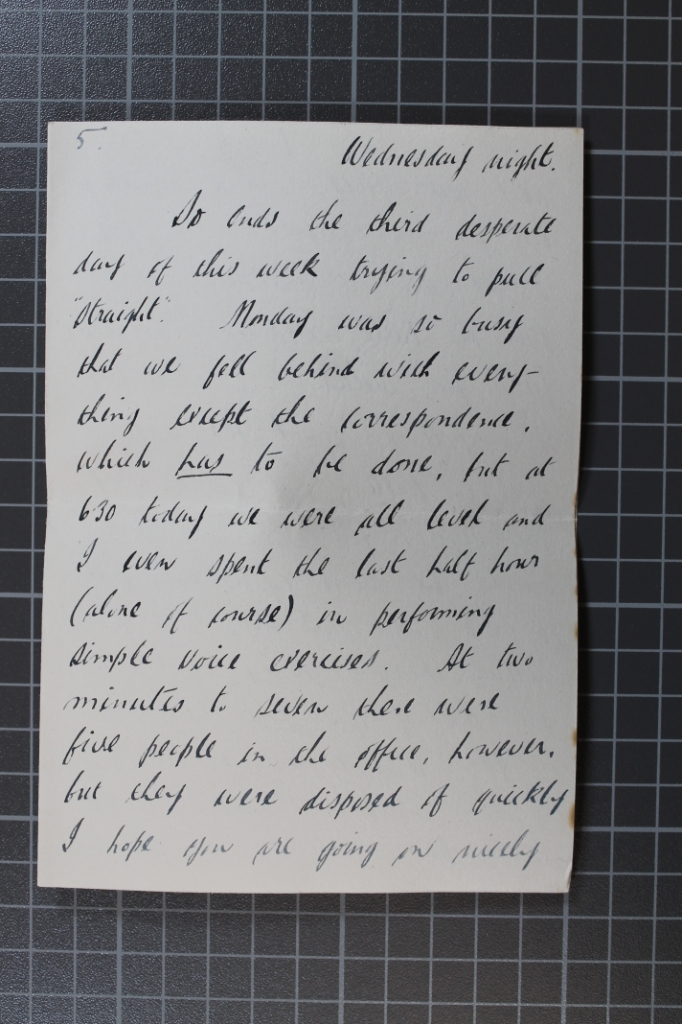 5.
Wednesday night.
So ends the third desperate
day of this week trying to pull
"straight". Monday was so busy
that we fell behind with every-
thing except the correspondence,
which has to be done, but at
630 today we were all level and
I even spent the last half hour
(alone of course) in performing
simple voice exercises. At two
minutes to seven there were
five people in the office, however,
but they were disposed of quickly
I hope you are going on nicely